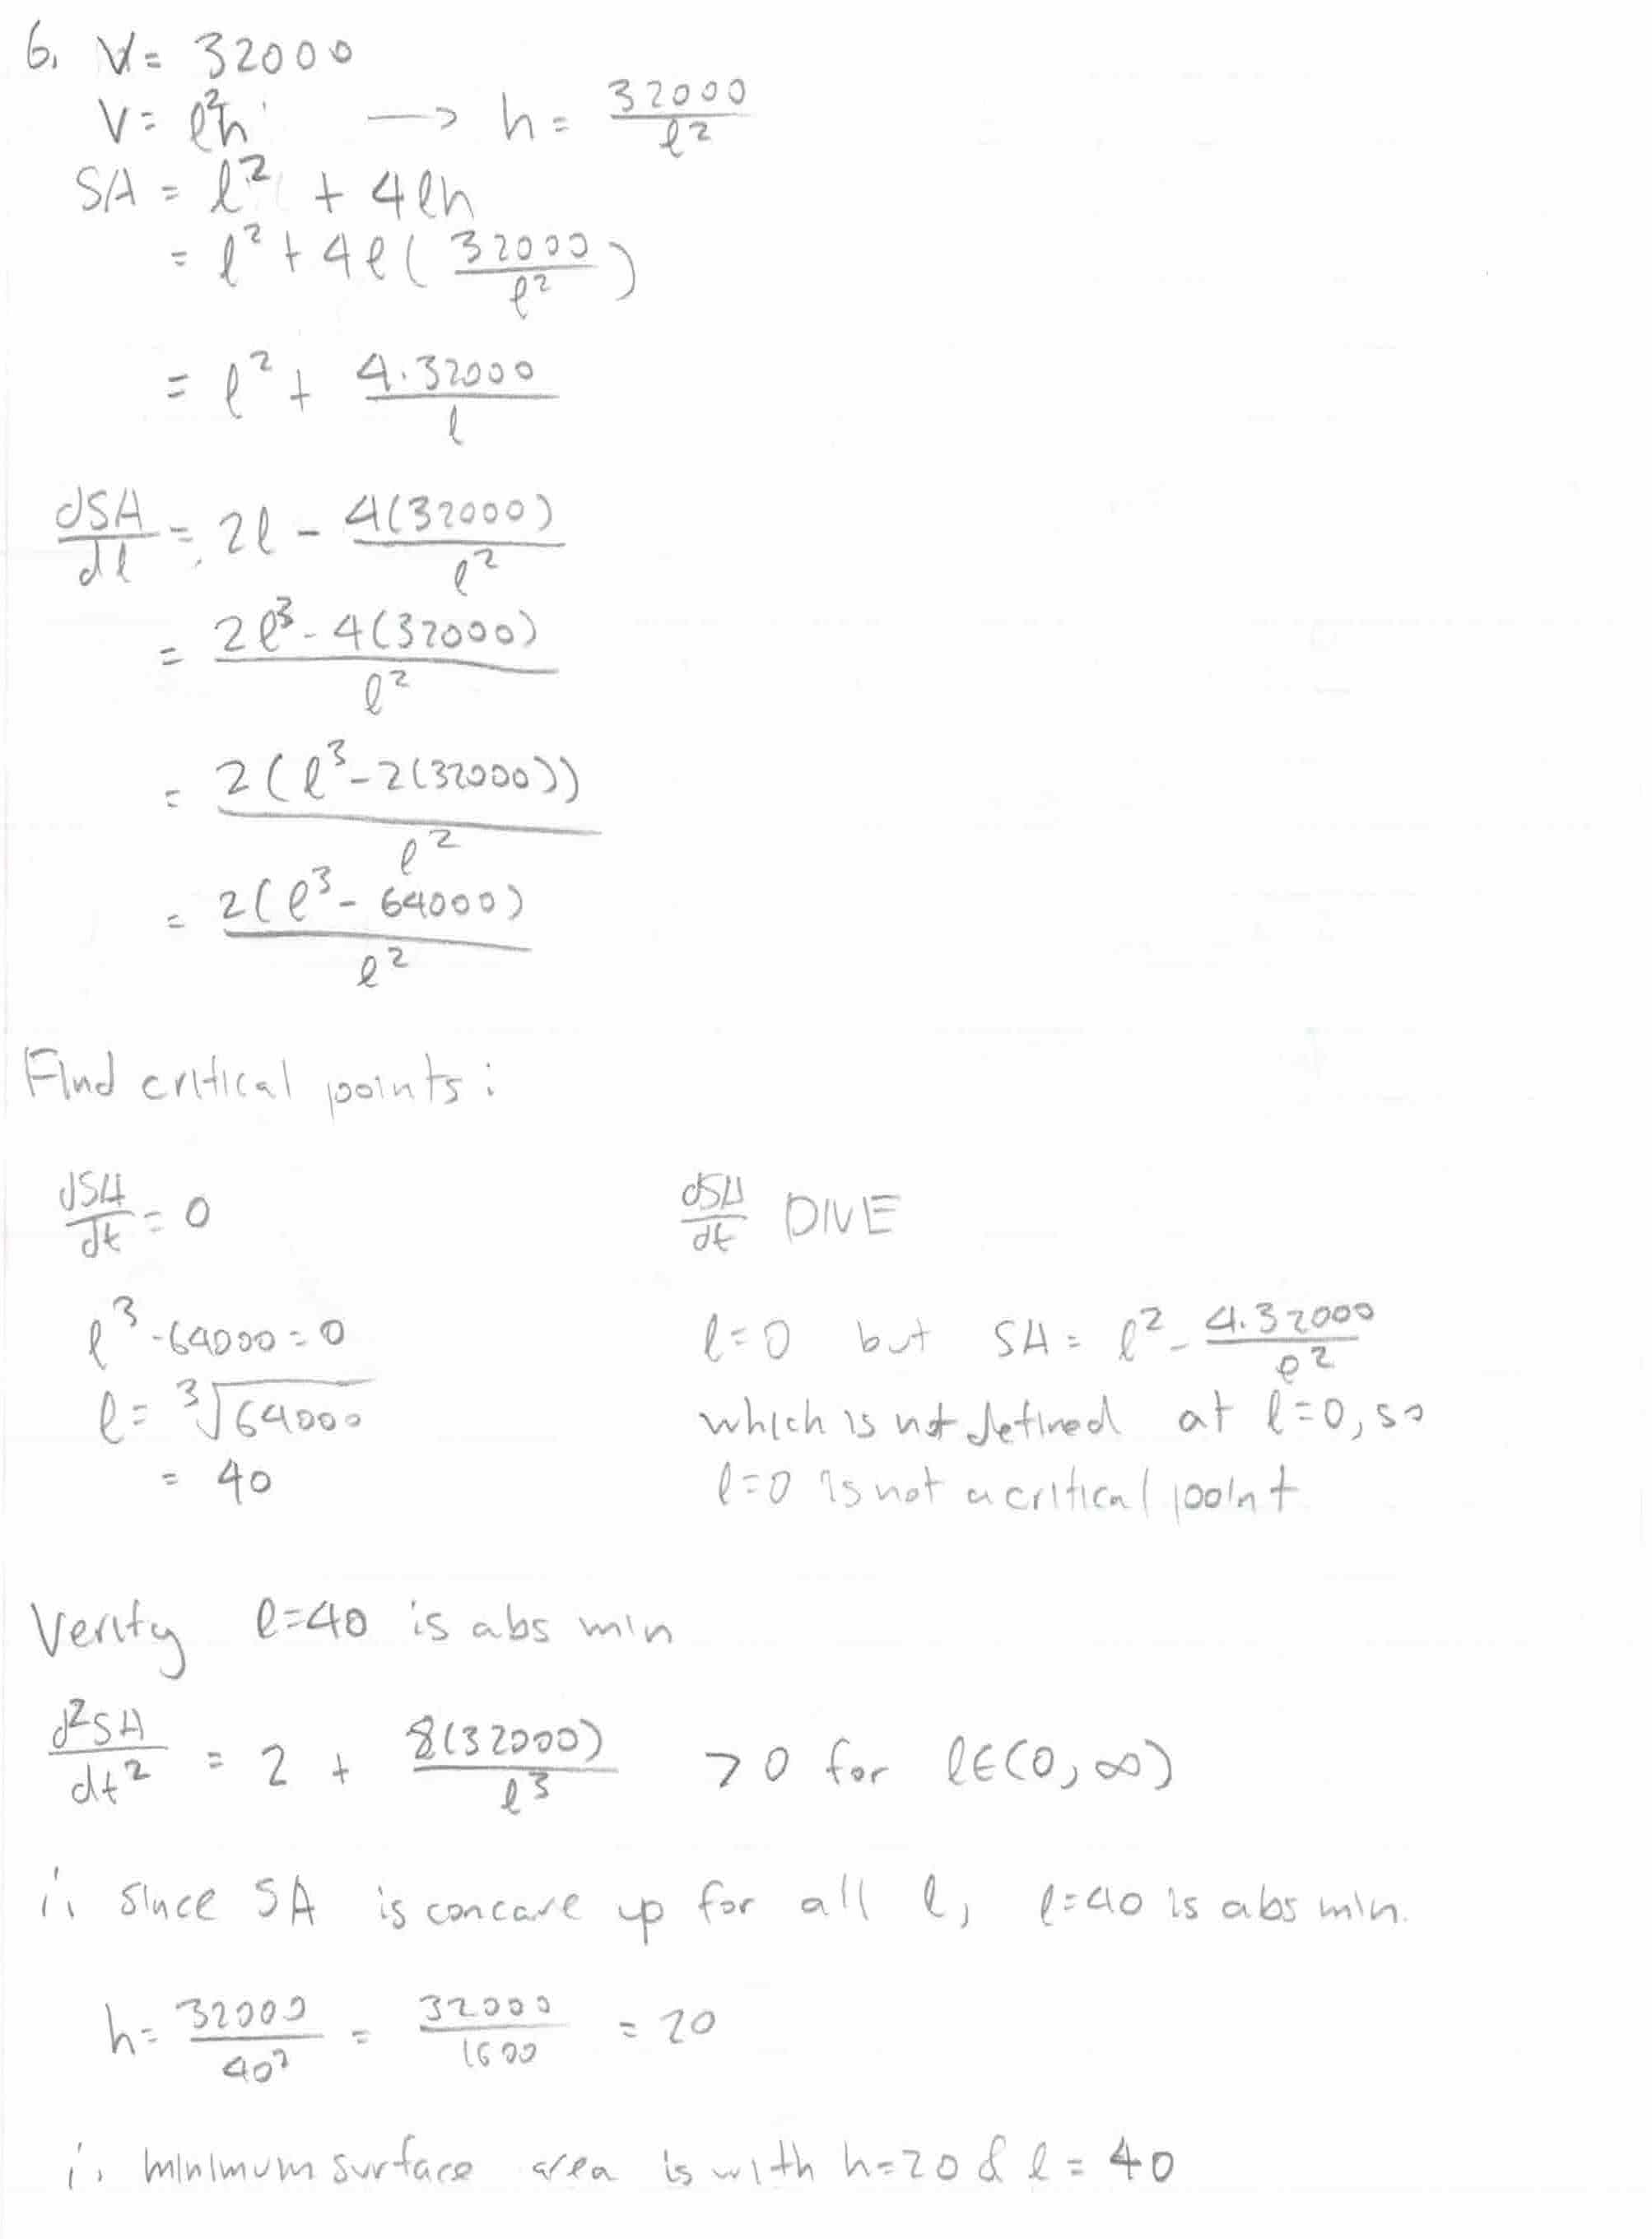 6. V = 32000
V = l²h → h = 32000/l²
SA = l² + 4lh
= l² + 4l(32000/l²)
= l² + 4·32000/l
dSA/dl = 2l - 4(32000)/l²
= 2l³ - 4(32000)/l²
= 2(l³ - 2(32000))/l²
= 2(l³ - 64000)/l²
Find critical points:
dSA/dt = 0
l³ - 64000 = 0
l = ³√64000
= 40
dSA/dt DNE
l=0 but SA = l² - 4·32000/l²
which is not defined at l=0, so
l=0 is not a critical point
Verify l=40 is abs min
d²SA/dt² = 2 + 8(32000)/l³ > 0 for l∈(0, ∞)
∴ since SA is concave up for all l, l=40 is abs min.
h = 32000/40² = 32000/1600 = 20
∴ minimum surface area is with h=20 & l = 40